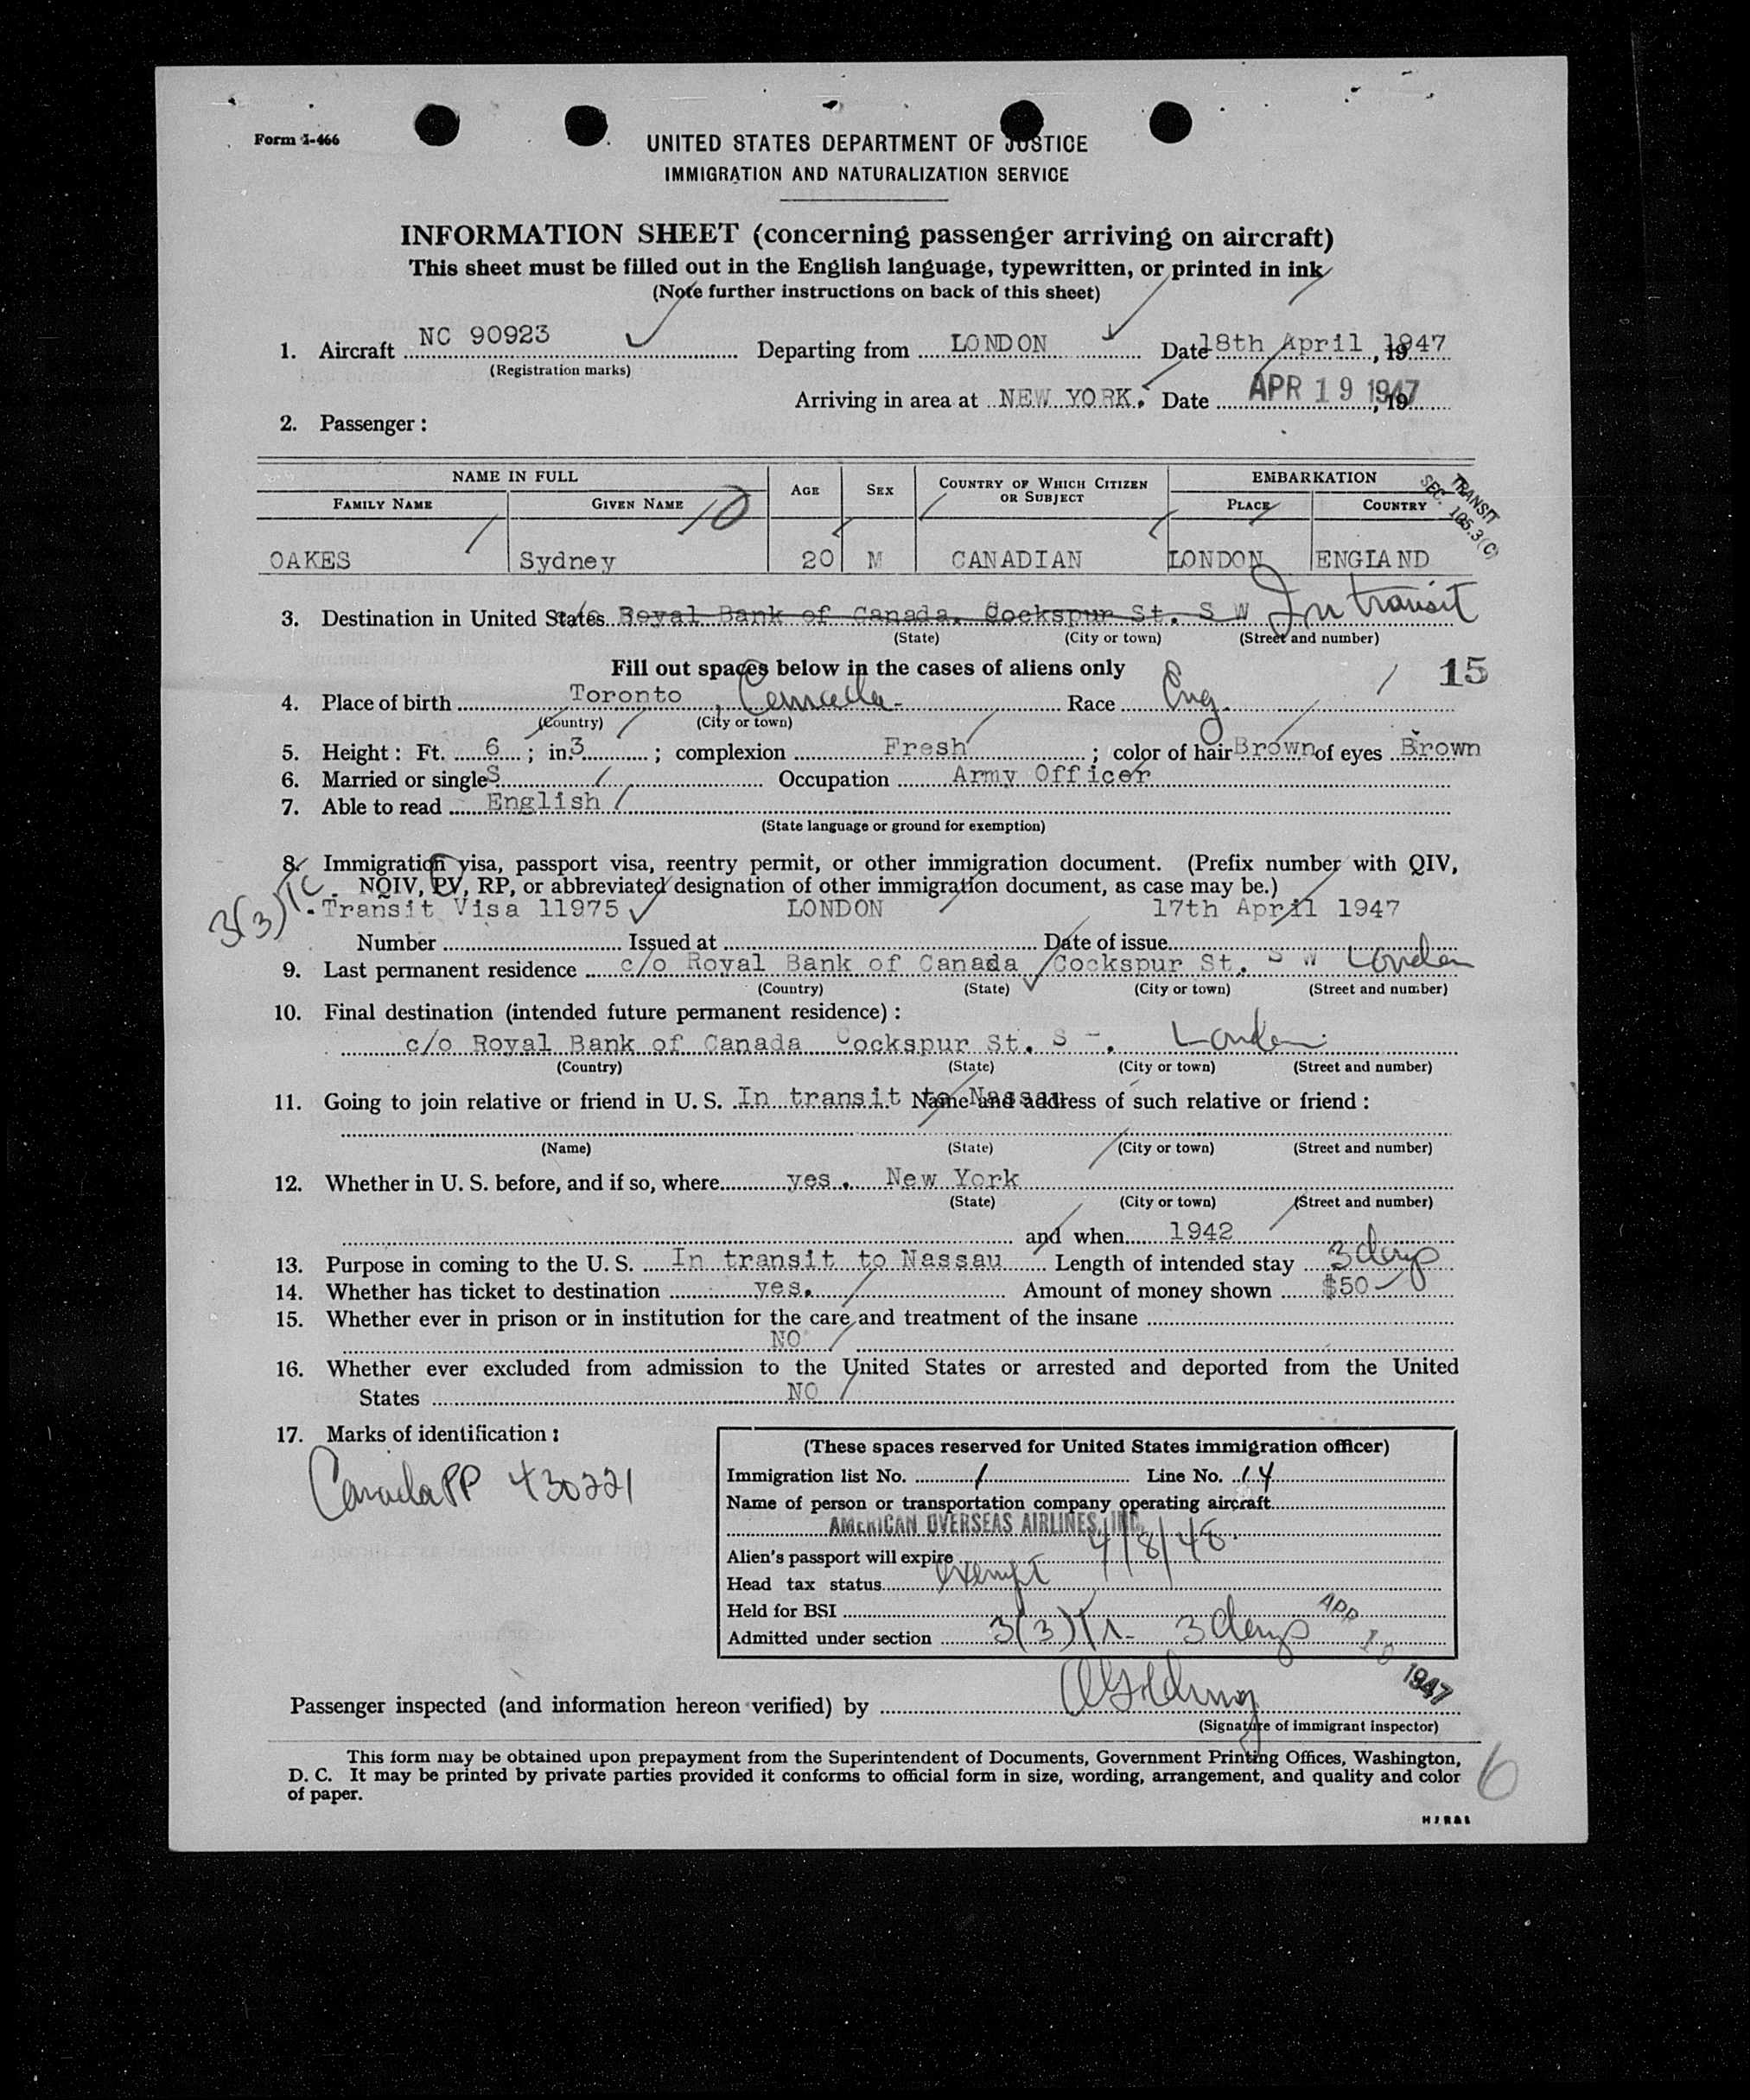 Form I-466
UNITED STATES DEPARTMENT OF JUSTICE
IMMIGRATION AND NATURALIZATION SERVICE
INFORMATION SHEET (concerning passenger arriving on aircraft)
This sheet must be filled out in the English language, typewritten, or printed in ink
(Note further instructions on back of this sheet)
1. Aircraft NC 90923 Departing from LONDON Date 18th April, 1947
(Registration marks)
Arriving in area at NEW YORK. Date APR 19 1947, 19
2. Passenger:
NAME IN FULL AGE SEX COUNTRY OF WHICH CITIZEN OR SUBJECT EMBARKATION
FAMILY NAME GIVEN NAME PLACE COUNTRY
TRANSIT
SEC. 105.3(C)
10
OAKES Sydney 20 M CANADIAN LONDON ENGLAND
3. Destination in United States c/o Royal Bank of Canada, Cockspur St. S W In transit
(State) (City or town) (Street and number)
Fill out spaces below in the cases of aliens only 15
4. Place of birth Toronto, Canada Race Eng.
(Country) (City or town)
5. Height: Ft. 6; in. 3; complexion Fresh; color of hair Brown of eyes Brown
6. Married or single S Occupation Army Officer
7. Able to read English
(State language or ground for exemption)
8. Immigration visa, passport visa, reentry permit, or other immigration document. (Prefix number with QIV,
NQIV, PV, RP, or abbreviated designation of other immigration document, as case may be.)
Transit Visa 11975 LONDON 17th April 1947
Number Issued at Date of issue
9. Last permanent residence c/o Royal Bank of Canada Cockspur St. S W London
(Country) (State) (City or town) (Street and number)
10. Final destination (intended future permanent residence):
c/o Royal Bank of Canada Cockspur St. S -. London
(Country) (State) (City or town) (Street and number)
11. Going to join relative or friend in U. S. In transit to Nassau Name and address of such relative or friend:
(Name) (State) (City or town) (Street and number)
12. Whether in U. S. before, and if so, where yes. New York
(State) (City or town) (Street and number)
and when 1942
13. Purpose in coming to the U. S. In transit to Nassau Length of intended stay 3 days
14. Whether has ticket to destination yes. Amount of money shown $50
15. Whether ever in prison or in institution for the care and treatment of the insane
NO
16. Whether ever excluded from admission to the United States or arrested and deported from the United
States NO
17. Marks of identification:
Canada PP 430221
(These spaces reserved for United States immigration officer)
Immigration list No. 1 Line No. 14
Name of person or transportation company operating aircraft
AMERICAN OVERSEAS AIRLINES, INC.
Alien's passport will expire 4/8/48.
Head tax status exempt
Held for BSI
Admitted under section 3(3) Tr- 3 days
APR 1947
Passenger inspected (and information hereon verified) by
(Signature of immigrant inspector)
This form may be obtained upon prepayment from the Superintendent of Documents, Government Printing Offices, Washington,
D. C. It may be printed by private parties provided it conforms to official form in size, wording, arrangement, and quality and color
of paper.
6